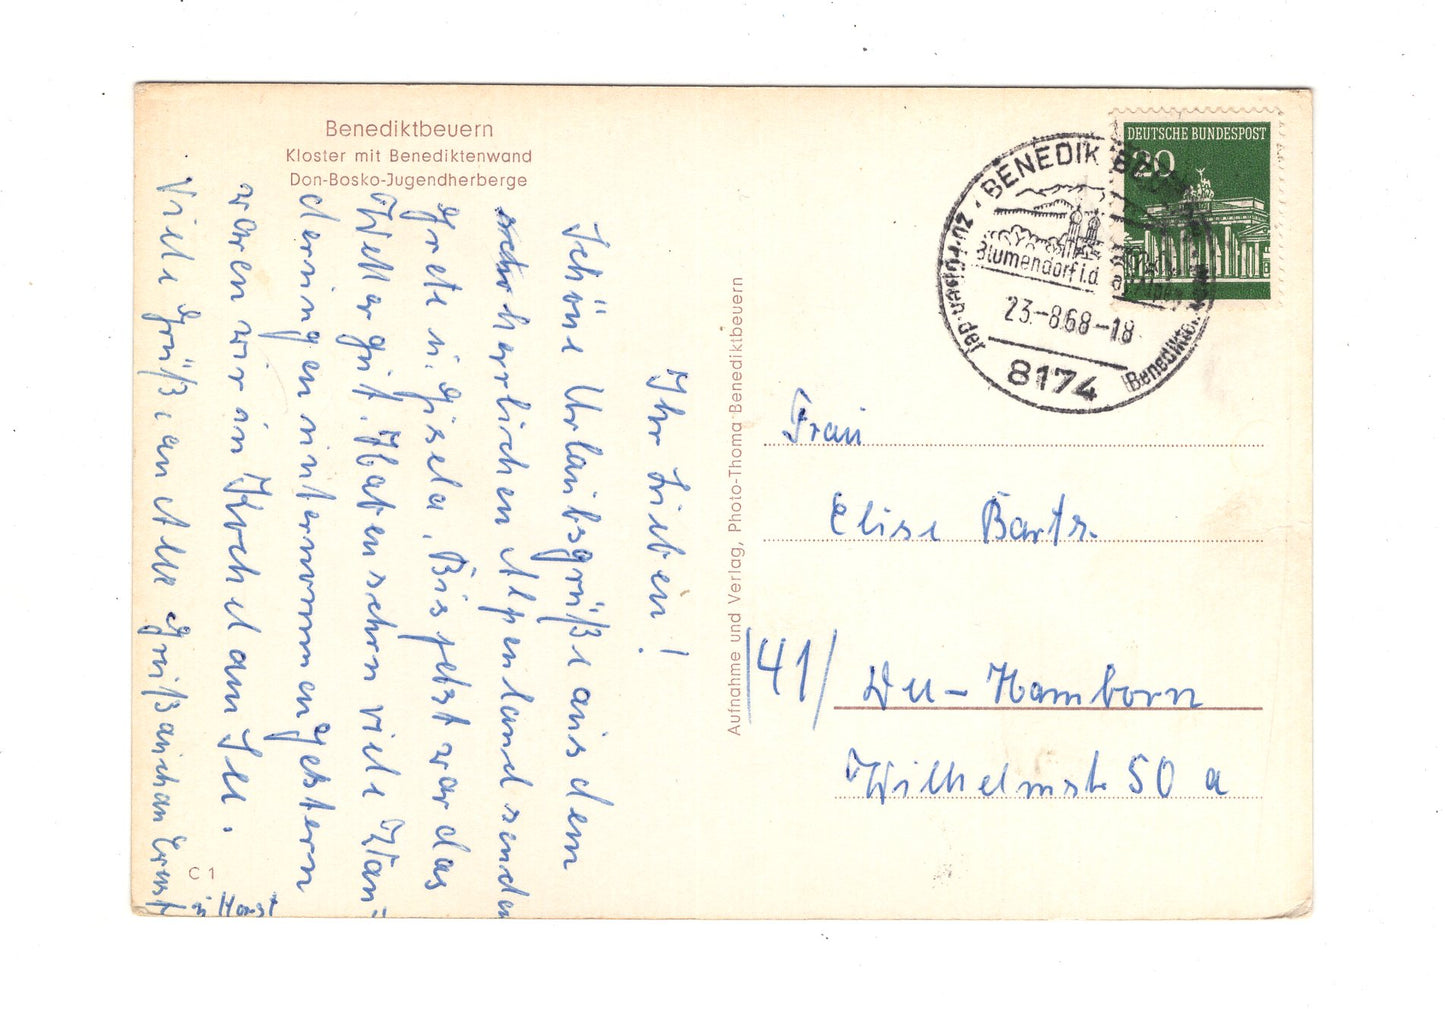 Benediktbeuern
Kloster mit Benediktenwand
Don-Bosko-Jugendherberge
Ihr Lieben!
Schöne Urlaubsgrüße aus dem
herrlichen Alpenland senden
Grete u. Gisela. Bis jetzt war das
Wetter gut. Haben schon viele Wan-
derungen unternommen gestern
waren wir in Kochel am See.
Viele Grüße an Alle Gruß auch an Ernst
u Horst
C 1
Aufnahme und Verlag, Photo-Thoma Benediktbeuern
DEUTSCHE BUNDESPOST
20
BENEDIKTBEUERN
Blumendorf i.d.
23.-8.68-18
8174
Frau
Elise Bartz.
/41/ Du-Hamborn
Wilhelmstr 50 a